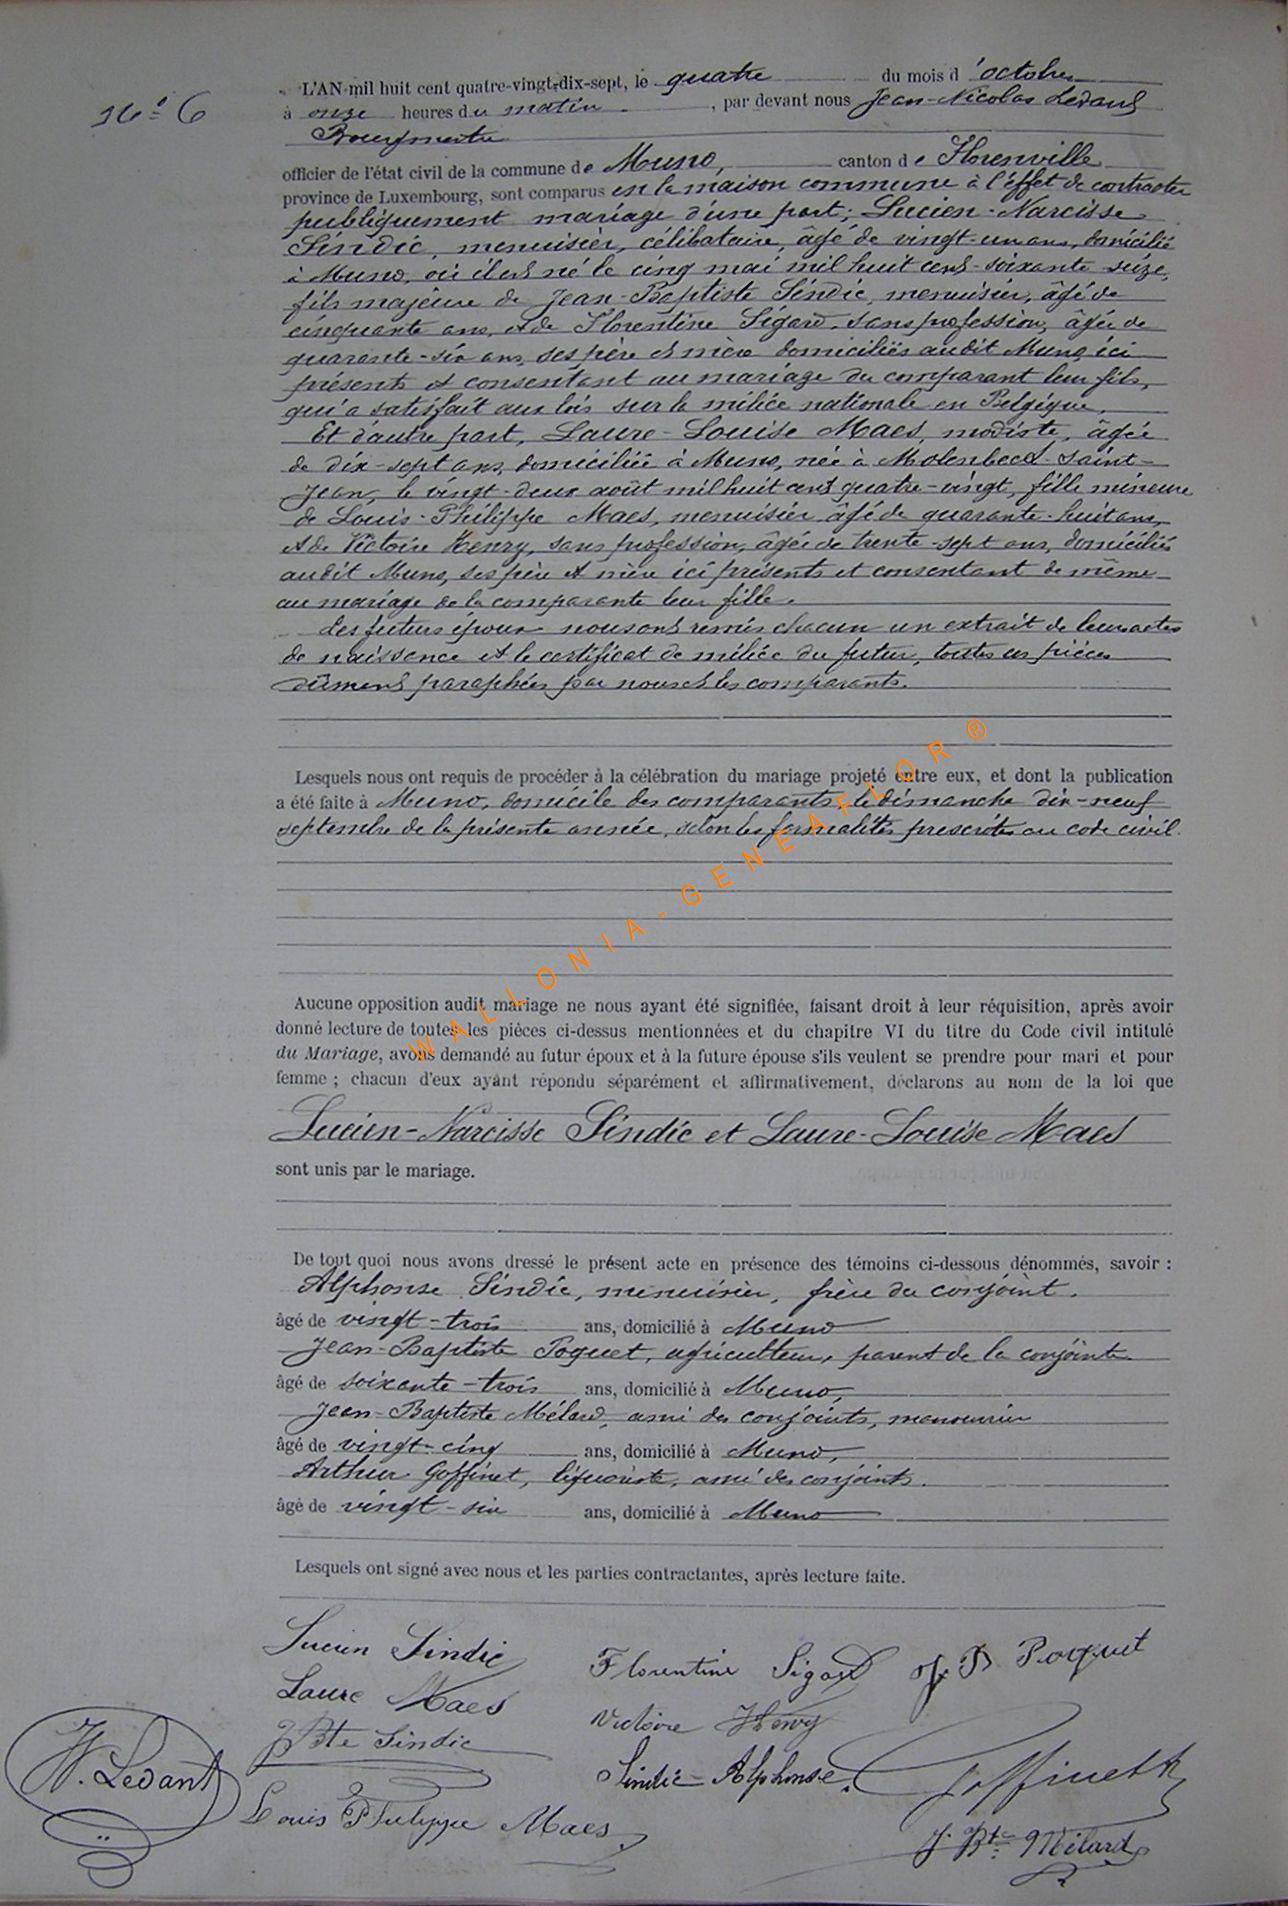 N° 6
L'AN mil huit cent quatre-vingt-dix-sept, le quatre du mois d'octobre
à onze heures du matin, par devant nous Jean-Nicolas Ledant
Bourgmestre
officier de l'état civil de la commune de Muno, canton de Florenville
province de Luxembourg, sont comparus en la maison commune à l'effet de contracter
publiquement mariage d'une part; Lucien-Narcisse
Sindic, menuisier, célibataire, âgé de vingt-un ans, domicilié
à Muno, où il est né le cinq mai mil huit cent soixante seize,
fils majeur de Jean-Baptiste Sindic, menuisier, âgé de
cinquante ans, et de Florentine Sigard, sans profession, âgée de
quarante-six ans, ses père et mère domiciliés audit Muno, ici
présents et consentant au mariage du comparant leur fils,
qui a satisfait aux lois sur la milice nationale en Belgique.
Et d'autre part, Laure-Louise Maes, modiste, âgée
de dix-sept ans, domiciliée à Muno, née à Molenbeek-Saint-
Jean, le vingt-deux août mil huit cent quatre-vingt, fille mineure
de Louis-Philippe Maes, menuisier, âgé de quarante-huit ans,
et de Victoire Henry, sans profession, âgée de trente-sept ans, domiciliés
audit Muno, ses père et mère ici présents et consentant de même
au mariage de la comparante leur fille.
Les futurs époux nous ont remis chacun un extrait de leurs actes
de naissance et le certificat de milice du futur, toutes ces pièces
dûment paraphées par nous et les comparants.
Lesquels nous ont requis de procéder à la célébration du mariage projeté entre eux, et dont la publication
a été faite à Muno, domicile des comparants, le dimanche dix-neuf
septembre de la présente année, selon les formalités prescrites au code civil.
WALLONIA-GENEAFLOR®
Aucune opposition audit mariage ne nous ayant été signifiée, faisant droit à leur réquisition, après avoir
donné lecture de toutes les pièces ci-dessus mentionnées et du chapitre VI du titre du Code civil intitulé
du Mariage, avons demandé au futur époux et à la future épouse s'ils veulent se prendre pour mari et pour
femme ; chacun d'eux ayant répondu séparément et affirmativement, déclarons au nom de la loi que
Lucien-Narcisse Sindic et Laure-Louise Maes
sont unis par le mariage.
De tout quoi nous avons dressé le présent acte en présence des témoins ci-dessous dénommés, savoir :
Alphonse Sindic, menuisier, frère du conjoint.
âgé de vingt-trois ans, domicilié à Muno
Jean-Baptiste Poquet, agriculteur, parent de la conjointe
âgé de soixante-trois ans, domicilié à Muno,
Jean-Baptiste Mélard, ami des conjoints, manouvrier
âgé de vingt-cinq ans, domicilié à Muno,
Arthur Goffinet, liquoriste, ami des conjoints.
âgé de vingt-six ans, domicilié à Muno
Lesquels ont signé avec nous et les parties contractantes, après lecture faite.
Lucien Sindic
Florentine Sigard
J. B Poquet
Laure Maes
Victoire Henry
JBte Sindic
Sindic Alphonse.
Goffinet A
N. Ledant
Louis Philippe Maes
J. Bte Mélard